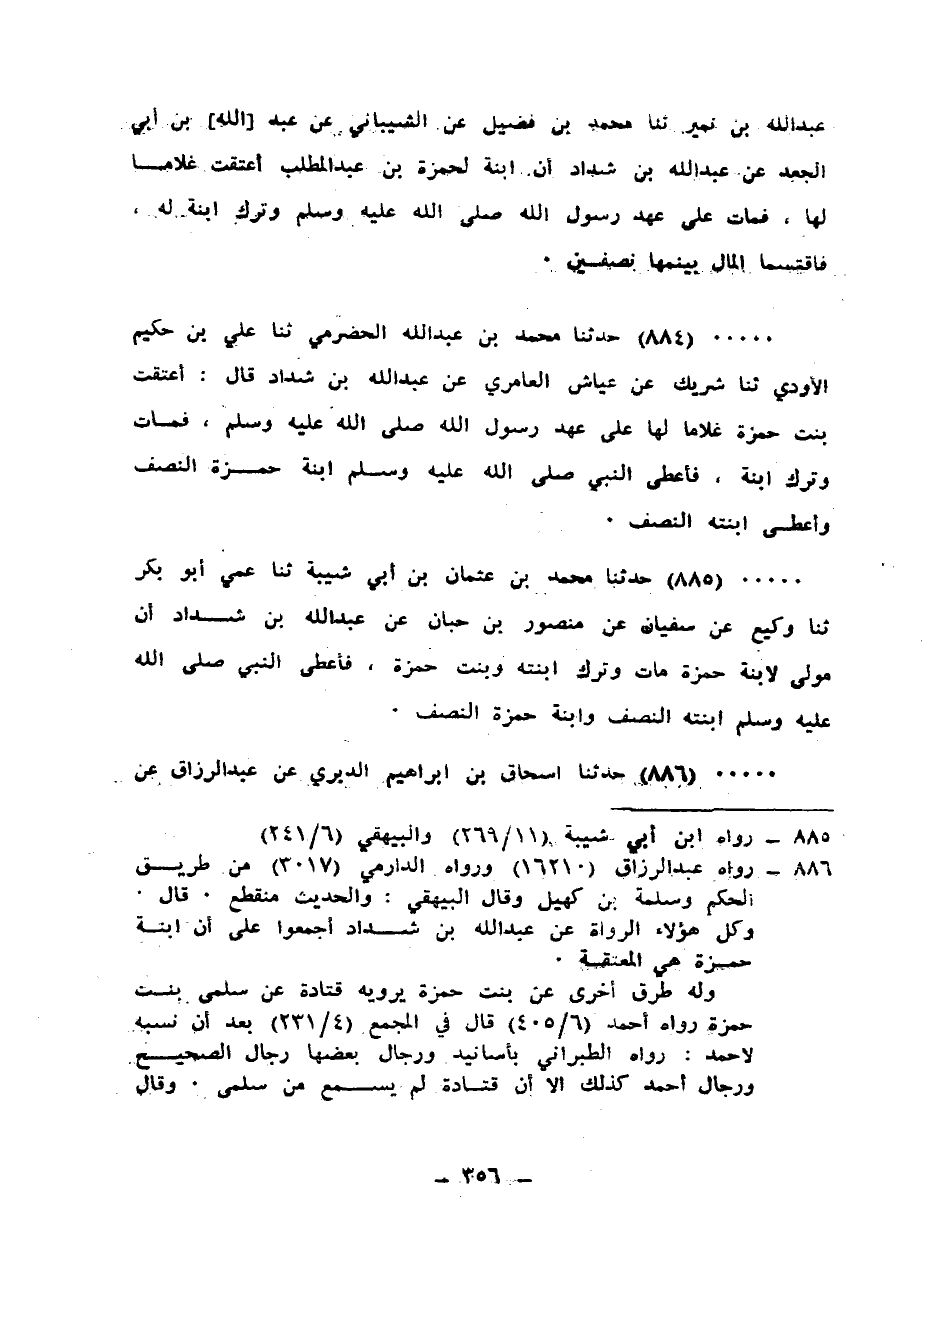 عبدالله بن نمير ثنا محمد بن فضيل عن الشيباني عن عبد [الله] بن أبي
الجعد عن عبدالله بن شداد أن ابنة لحمزة بن عبدالمطلب أعتقت غلامـــا
لها ، فمات على عهد رسول الله صلى الله عليه وسلم وترك ابنة له ،
فاقتسما المال بينهما نصفـين ٠
٠٠٠٠٠ (٨٨٤) حدثنا محمد بن عبدالله الحضرمي ثنا علي بن حكيم
الأودي ثنا شريك عن عياش العامري عن عبدالله بن شداد قال : أعتقت
بنت حمزة غلاما لها على عهد رسول الله صلى الله عليه وسلم ، فمـات
وترك ابنة ، فأعطى النبي صلى الله عليه وســلم ابنة حمــزة النصف
وأعطـى ابنته النصف ٠
٠٠٠٠٠ (٨٨٥) حدثنا محمد بن عثمان بن أبي شيبة ثنا عمي أبو بكر
ثنا وكيع عن سفيان عن منصور بن حبان عن عبدالله بن شـــداد أن
مولى لابنة حمزة مات وترك ابنته وبنت حمزة ، فأعطى النبي صلى الله
عليه وسلم ابنته النصف وابنة حمزة النصف ٠
٠٠٠٠٠ (٨٨٦) حدثنا اسحاق بن ابراهيم الدبري عن عبدالرزاق عن
٨٨٥ ــ رواه ابن أبي شيبة (٢٦٩/١١) والبيهقي (٢٤١/٦)
٨٨٦ ــ رواه عبدالرزاق (١٦٢١٠) ورواه الدارمي (٣٠١٧) من طريــق
الحكم وسلمة بن كهيل وقال البيهقي : والحديث منقطع ٠ قال ٠
وكل هؤلاء الرواة عن عبدالله بن شـــداد أجمعوا على أن ابنــة
حمـزة هي المعتقـة ٠
وله طرق أخرى عن بنت حمزة يرويه قتادة عن سلمى بنــت
حمزة رواه أحمد (٤٠٥/٦) قال في المجمع (٢٣١/٤) بعد أن نسبه
لاحمد : رواه الطبراني بأسانيد ورجال بعضها رجال الصحيــح
ورجال أحمد كذلك الا أن قتـادة لم يســـمع من سلمى ٠ وقال
ــ ٣٥٦ ــ